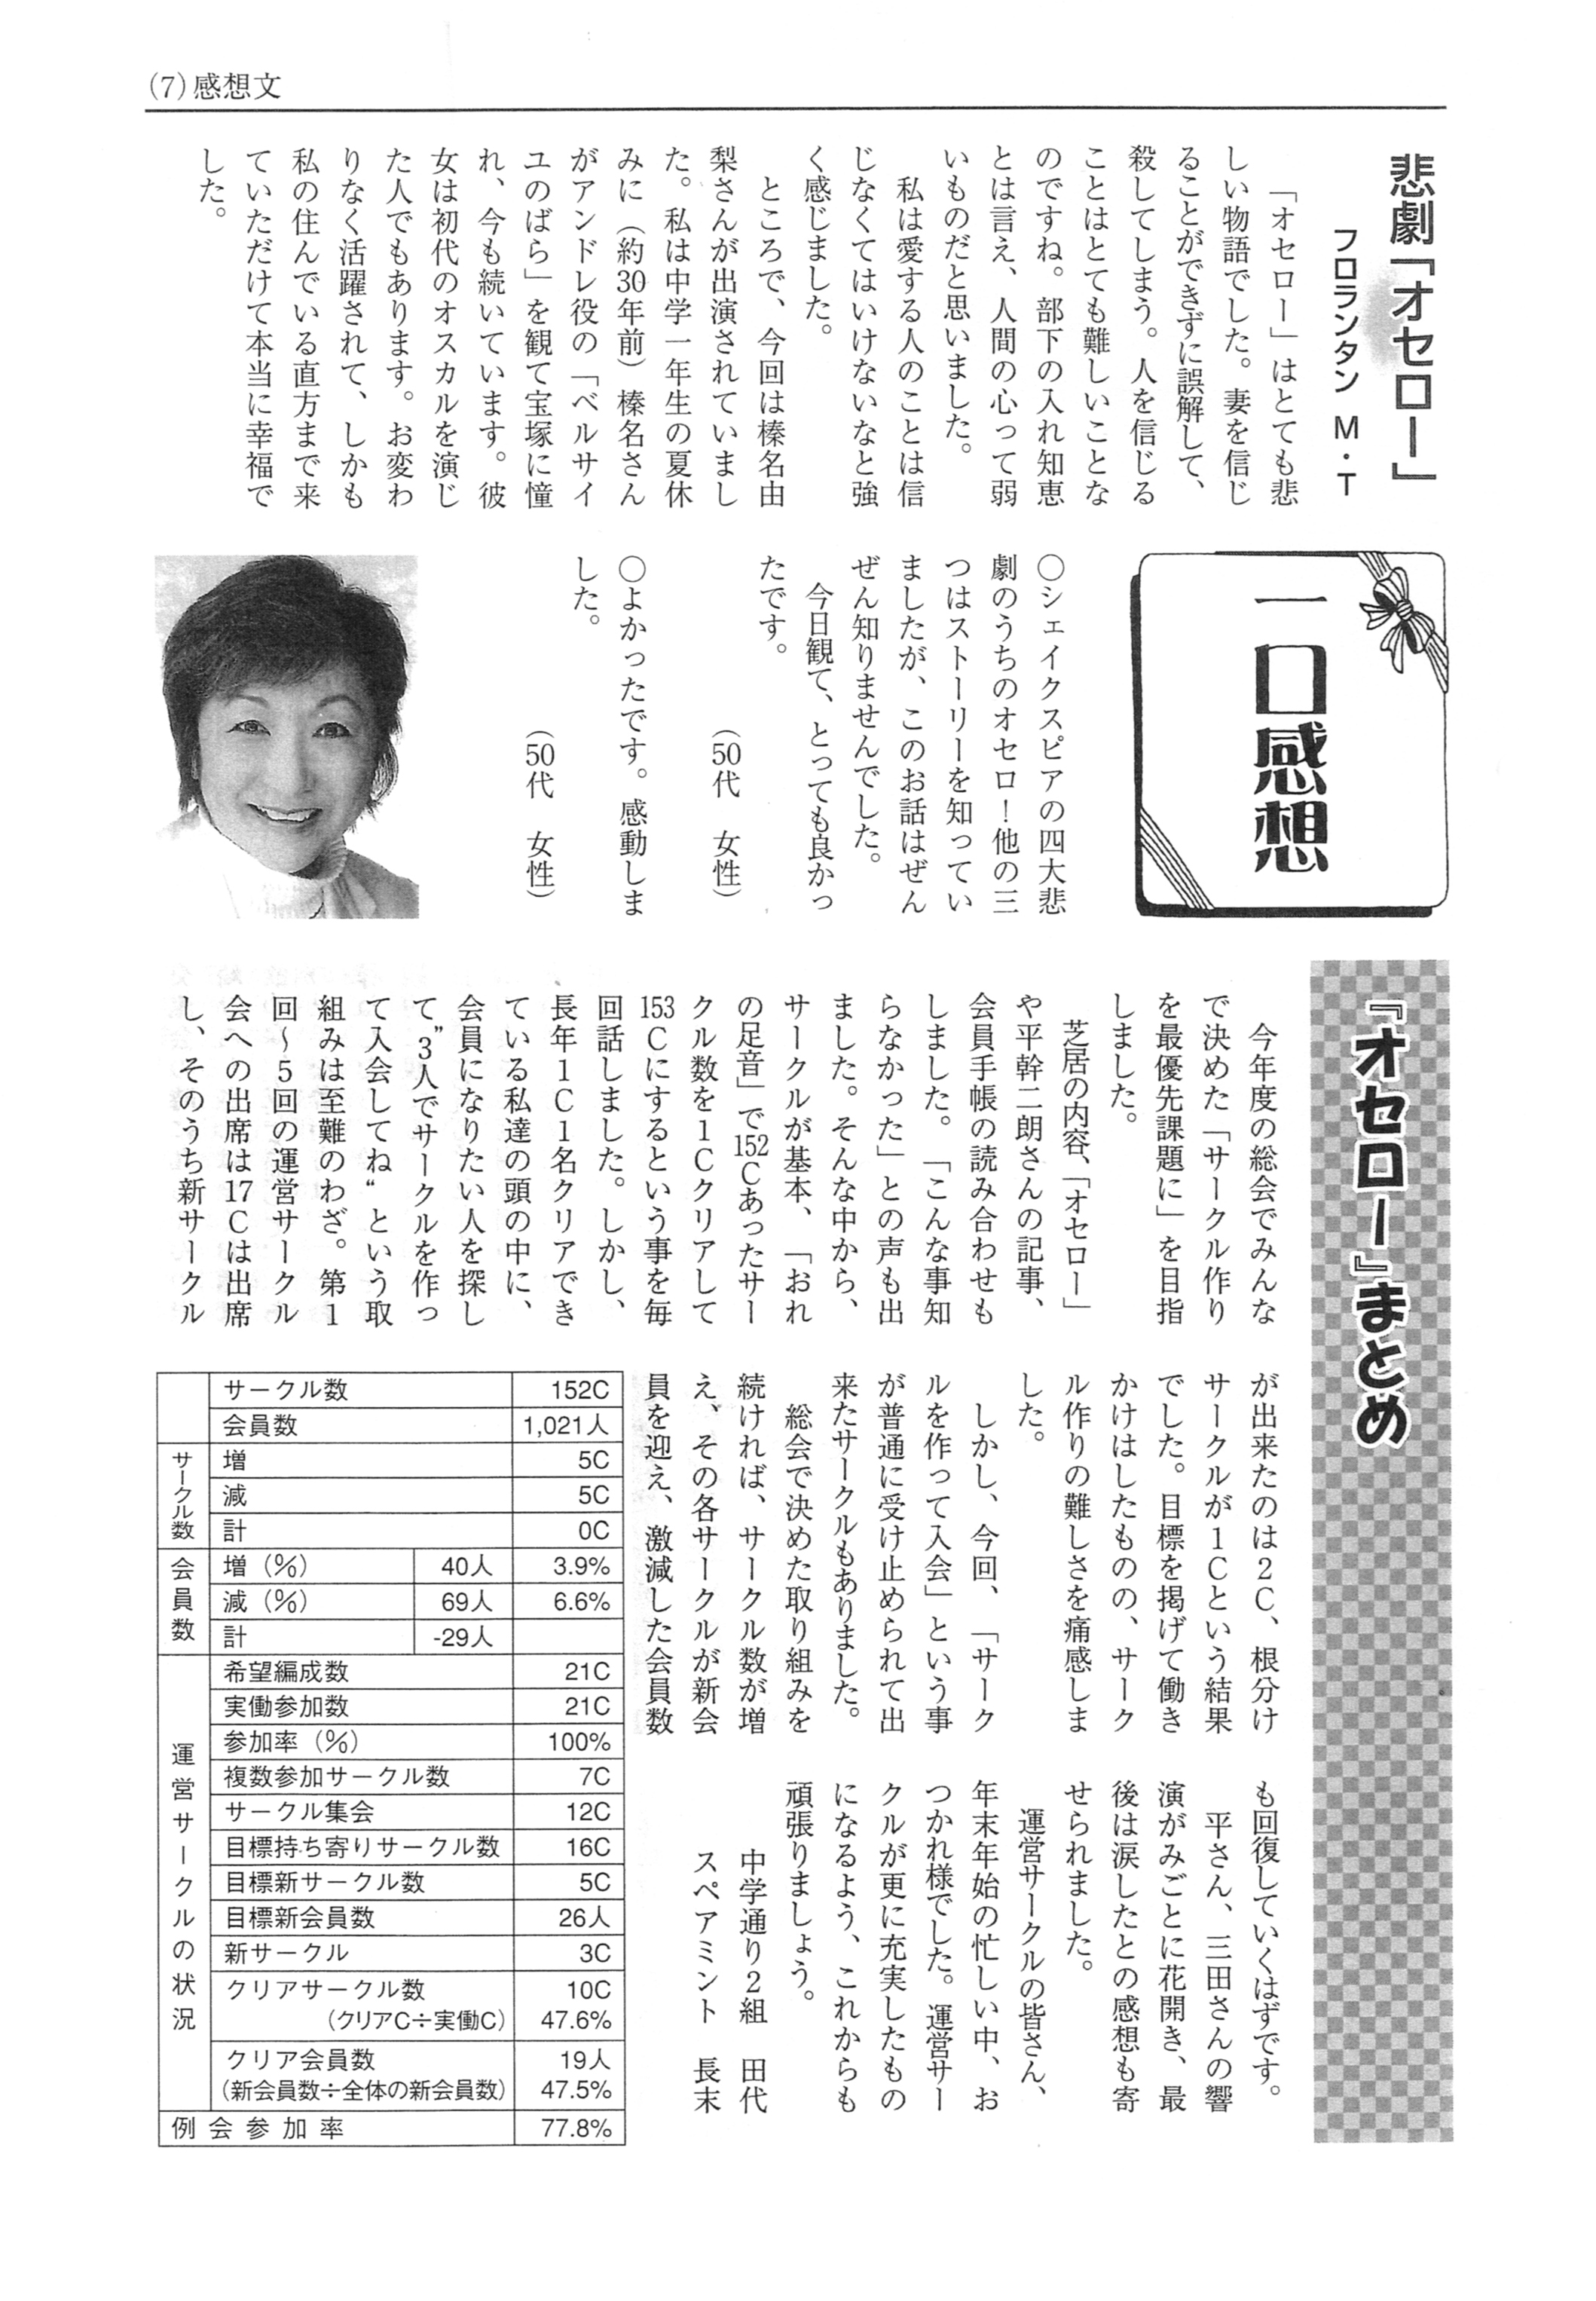 (7)感想文
悲劇「オセロー」
フロランタン　M・T
「オセロー」はとても悲
しい物語でした。妻を信じ
ることができずに誤解して、
殺してしまう。人を信じる
ことはとても難しいことな
のですね。部下の入れ知恵
とは言え、人間の心って弱
いものだと思いました。
私は愛する人のことは信
じなくてはいけないなと強
く感じました。
ところで、今回は榛名由
梨さんが出演されていまし
た。私は中学一年生の夏休
みに（約30年前）榛名さん
がアンドレ役の「ベルサイ
ユのばら」を観て宝塚に憧
れ、今も続いています。彼
女は初代のオスカルを演じ
た人でもあります。お変わ
りなく活躍されて、しかも
私の住んでいる直方まで来
ていただけて本当に幸福で
した。
一口感想
○シェイクスピアの四大悲
劇のうちのオセロ！他の三
つはストーリーを知ってい
ましたが、このお話はぜん
ぜん知りませんでした。
今日観て、とっても良かっ
たです。
（50代　女性）
○よかったです。感動しま
した。
（50代　女性）
『オセロー』まとめ
今年度の総会でみんな
で決めた「サークル作り
を最優先課題に」を目指
しました。
芝居の内容、「オセロー」
や平幹二朗さんの記事、
会員手帳の読み合わせも
しました。「こんな事知
らなかった」との声も出
ました。そんな中から、
サークルが基本、「おれ
の足音」で152Cあったサー
クル数を1Cクリアして
153Cにするという事を毎
回話しました。しかし、
長年1C1名クリアでき
ている私達の頭の中に、
会員になりたい人を探し
て〝3人でサークルを作っ
て入会してね〟という取
組みは至難のわざ。第1
回～5回の運営サークル
会への出席は17Cは出席
し、そのうち新サークル
が出来たのは2C、根分け
サークルが1Cという結果
でした。目標を掲げて働き
かけはしたものの、サーク
ル作りの難しさを痛感しま
した。
しかし、今回、「サーク
ルを作って入会」という事
が普通に受け止められて出
来たサークルもありました。
総会で決めた取り組みを
続ければ、サークル数が増
え、その各サークルが新会
員を迎え、激減した会員数
も回復していくはずです。
平さん、三田さんの響
演がみごとに花開き、最
後は涙したとの感想も寄
せられました。
運営サークルの皆さん、
年末年始の忙しい中、お
つかれ様でした。運営サー
クルが更に充実したもの
になるよう、これからも
頑張りましょう。
中学通り2組　田代
スペアミント　長末
サークル数 152C
会員数 1,021人
サークル数
増 5C
減 5C
計 0C
会員数
増（％） 40人 3.9%
減（％） 69人 6.6%
計 -29人
運営サークルの状況
希望編成数 21C
実働参加数 21C
参加率（％） 100%
複数参加サークル数 7C
サークル集会 12C
目標持ち寄りサークル数 16C
目標新サークル数 5C
目標新会員数 26人
新サークル 3C
クリアサークル数 10C
（クリアC÷実働C） 47.6%
クリア会員数 19人
（新会員数÷全体の新会員数） 47.5%
例会参加率 77.8%